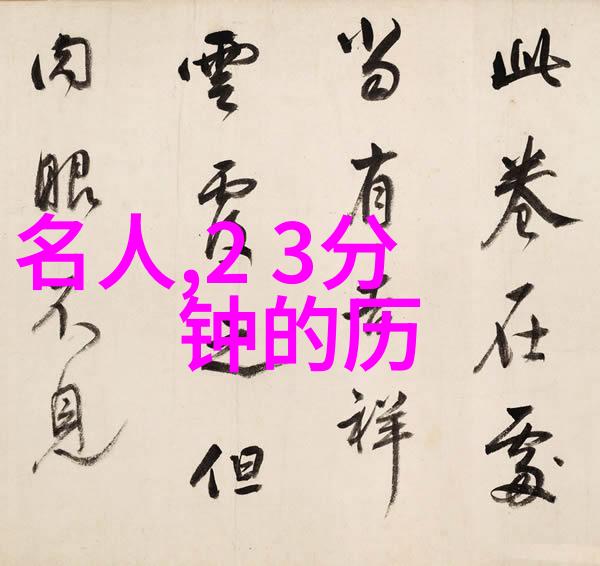 此卷在處
當有吉祥
雲覆之但
肉眼不見
名人,2 3分
钟的历